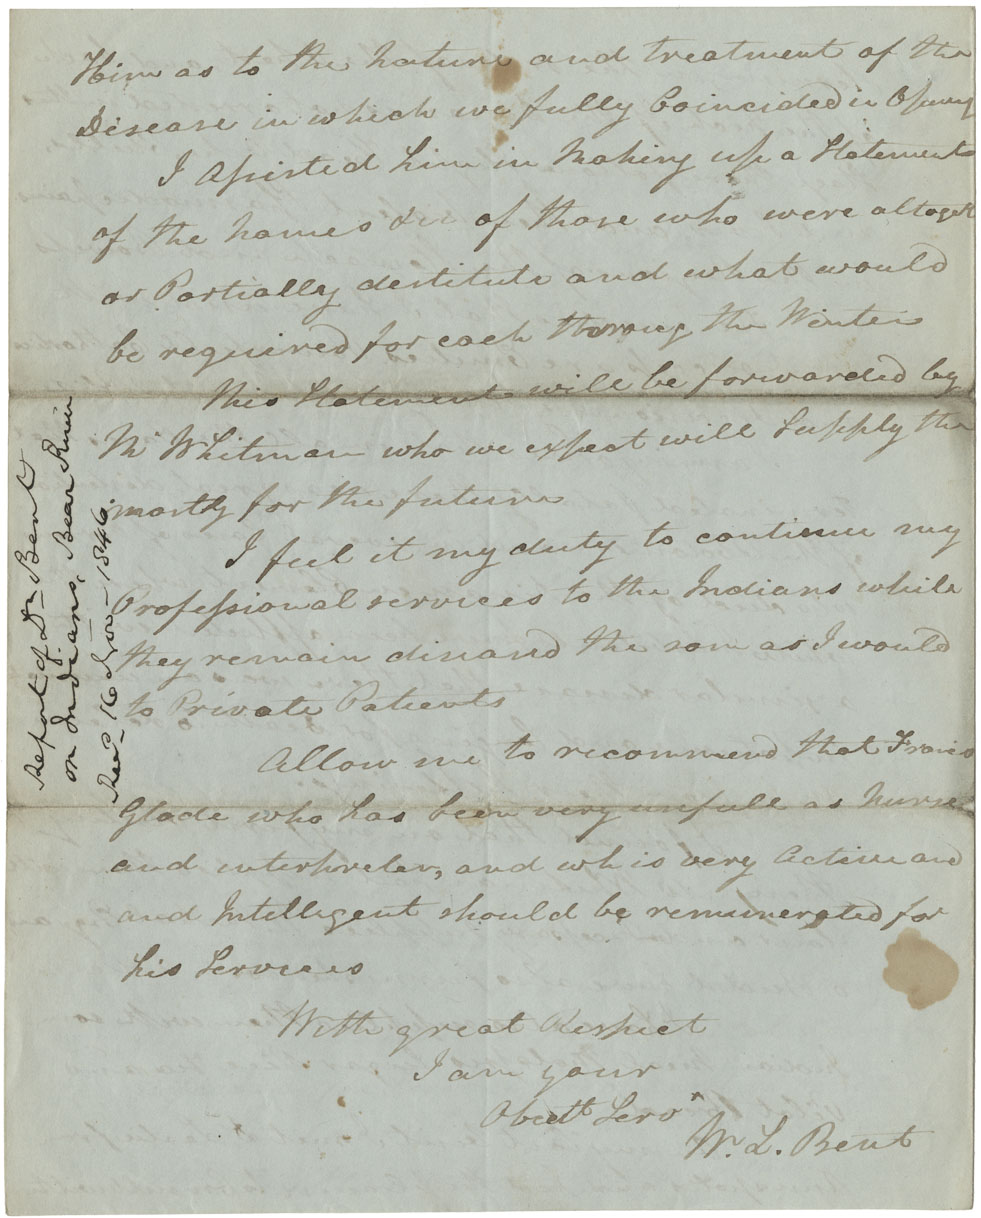 Him as to the nature and treatment of the
Disease in which we fully Coincided in
I Assisted him in Making up a Statement
of the names &c of those who were altogeth
or Partially destitute and what would
be required for each throug the Winter
This Statement will be forwarded by
Mr Whitman who we expect will Supply the
mostly for the future
I feel it my duty to continue my
Professional services to the Indians while
they remain diseased the sam as I would
to Private Patients
Allow me to recommend that
Glode who has been very usefull as Nurse
and interpreter, and wh is very Active and
and Intelligent should be remunerated for
his Services
With great Respect
I am your
Obedt Servt
W. L. Bent
Report of Dr Bent
on Indians, Bear River
16 Nov. 1846.